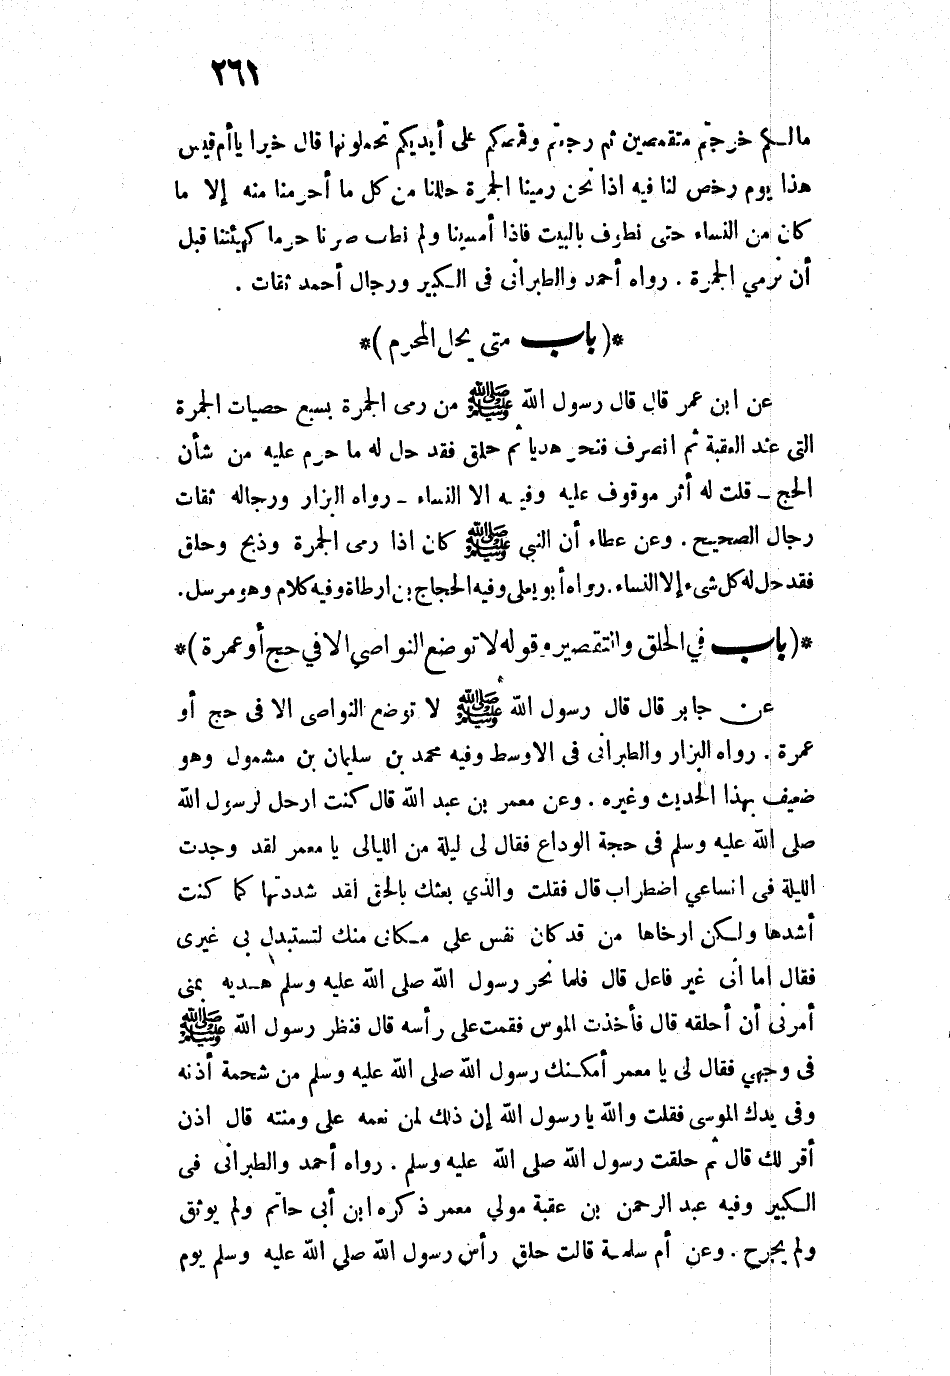 ٢٦١
مالكم خرجتم متقمصين ثم رجعتم وقمصكم على أيديكم تحملونها قال خيرا ياأم قيس
هذا يوم رخص لنا فيه اذا نحن رمينا الجمرة حللنا من كل ما أحرمنا منه إلا ما
كان من النساء حتى نطوف بالبيت فاذا أمسينا ولم نطب صرنا حرما كهيئتنا قبل
أن نرمي الجمرة . رواه أحمد والطبرانى فى الكبير ورجال أحمد ثقات .
*( باب متى يحل المحرم )*
عن ابن عمر قال قال رسول الله ﷺ من رمى الجمرة بسبع حصيات الجمرة
التى عند العقبة ثم انصرف فنحر هديا ثم حلق فقد حل له ما حرم عليه من شأن
الحج ـ قلت له أثر موقوف عليه وفيه الا النساء ـ رواه البزار ورجاله ثقات
رجال الصحيح . وعن عطاء أن النبي ﷺ كان اذا رمى الجمرة وذبح وحلق
فقد حل له كل شىء إلا النساء . رواه أبو يعلى وفيه الحجاج بن ارطاة وفيه كلام وهو مرسل .
*( باب في الحلق والتقصير وقوله لا توضع النواصي الا في حج أو عمرة )*
عن جابر قال قال رسول الله ﷺ لا توضع النواصى الا فى حج أو
عمرة . رواه البزار والطبرانى فى الاوسط وفيه محمد بن سليمان بن مشمول وهو
ضعيف بهذا الحديث وغيره . وعن معمر بن عبد الله قال كنت ارحل لرسول الله
صلى الله عليه وسلم فى حجة الوداع فقال لى ليلة من الليالى يا معمر لقد وجدت
الليلة فى انساعي اضطراب قال فقلت والذي بعثك بالحق لقد شددتها كما كنت
أشدها ولكن ارخاها من قد كان نفس على مكانى منك لتستبدل بى غيرى
فقال اما أنى غير فاعل قال فلما نحر رسول الله صلى الله عليه وسلم هديه بمنى
أمرنى أن أحلقه قال فأخذت الموس فقمت على رأسه قال فنظر رسول الله ﷺ
فى وجهي فقال لى يا معمر أمكنك رسول الله صلى الله عليه وسلم من شحمة أذنه
وفى يدك الموسى فقلت والله يا رسول الله إن ذلك لمن نعمه على ومنته قال اذن
أقر لك قال ثم حلقت رسول الله صلى الله عليه وسلم . رواه أحمد والطبرانى فى
الكبير وفيه عبد الرحمن بن عقبة مولي معمر ذكره ابن أبى حاتم ولم يوثق
ولم يجرح . وعن أم سلمة قالت حلق رأس رسول الله صلى الله عليه وسلم يوم